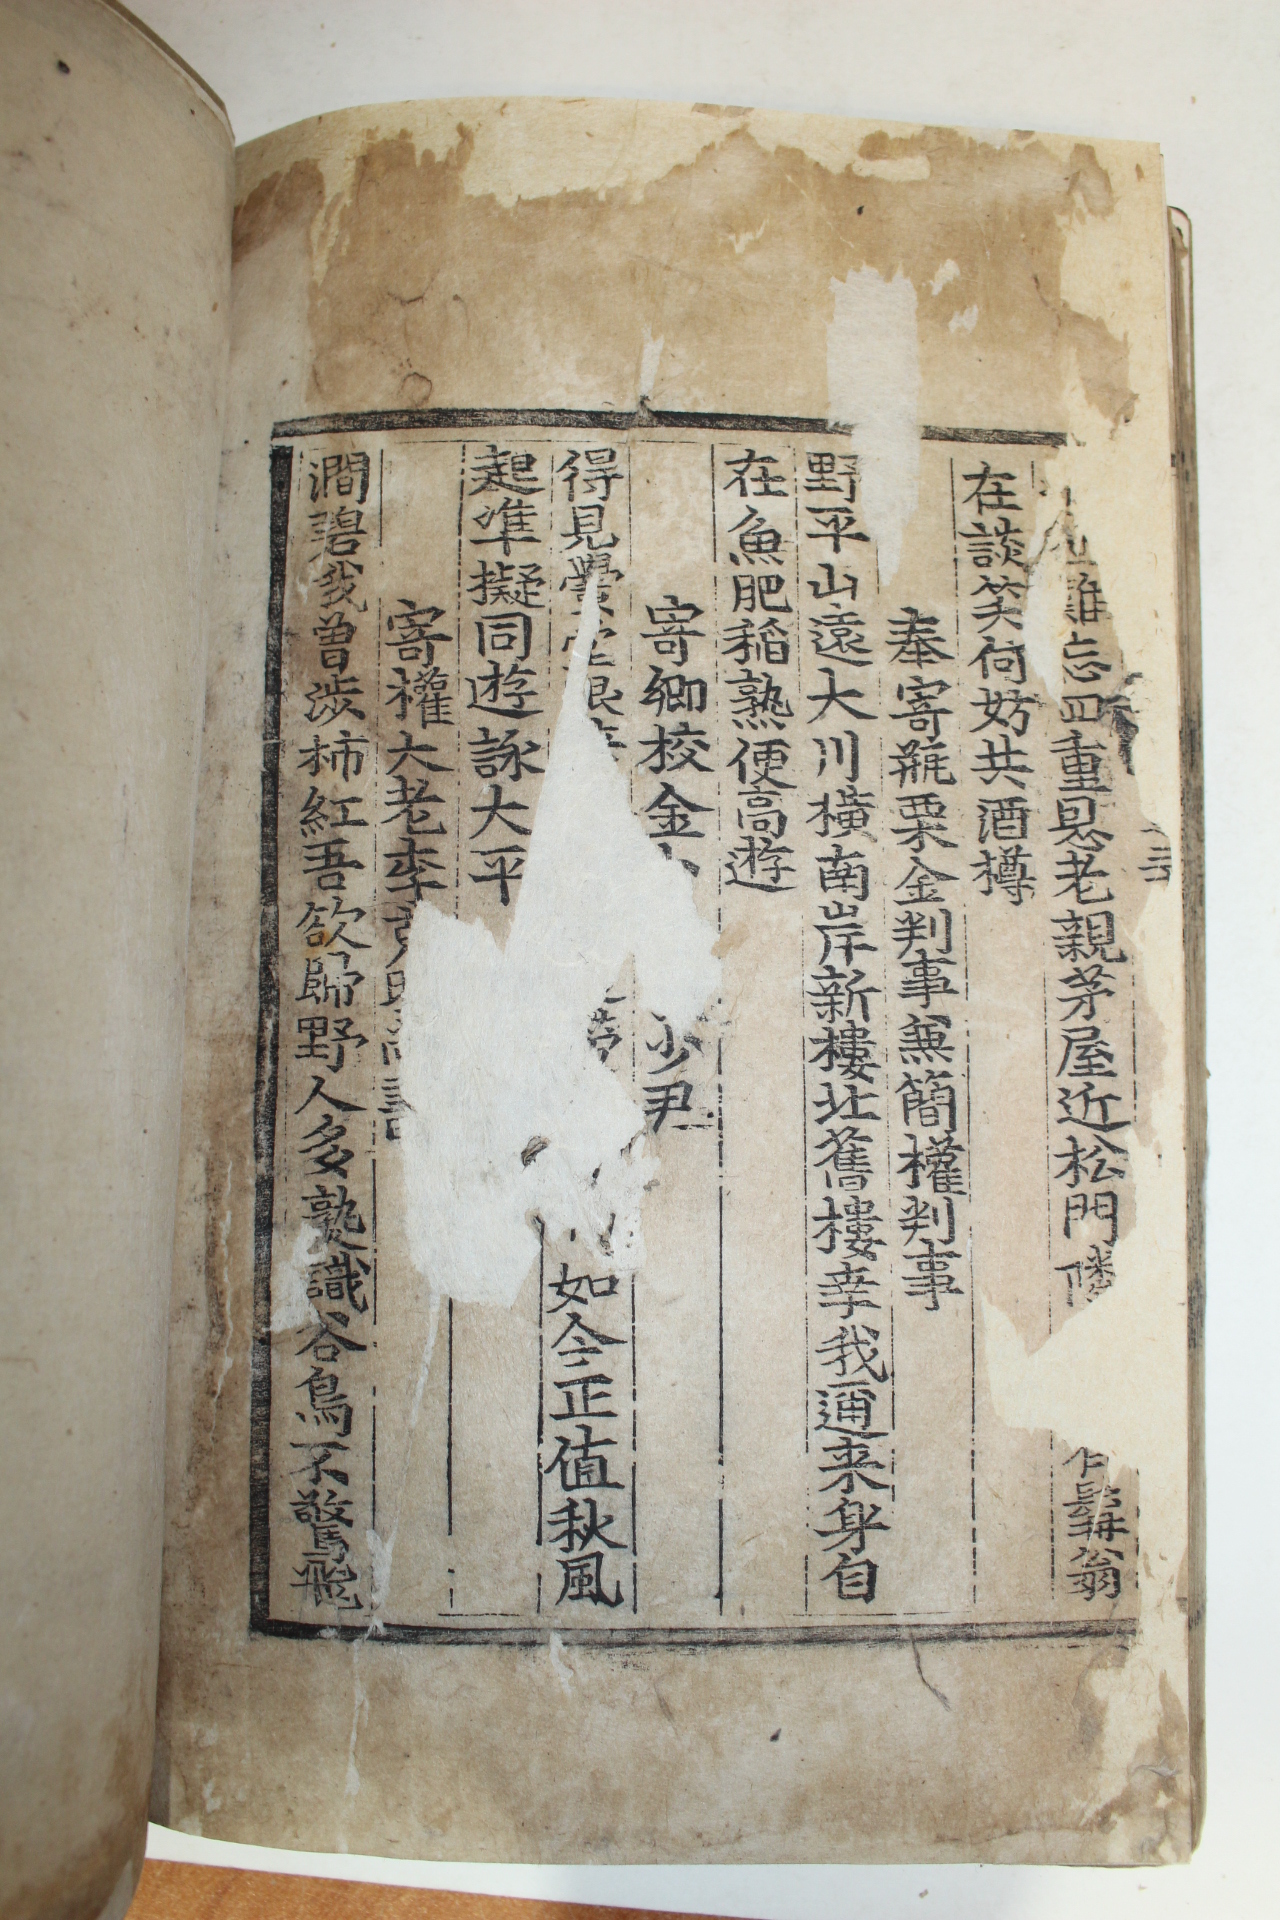 難忘四重恩老親茅屋近松門隣鬅翁
在談笑何妨共酒樽
奉寄瓶栗金判事兼簡權判事
野平山遠大川橫南岸新樓北舊樓幸我邇来身自
在魚肥稲熟便高遊
寄鄉校金少尹
得見如今正值秋風
起准擬同遊詠大平
寄權大老李
澗碧我曾涉柿紅吾欲歸野人多熟識谷鳥不驚飛